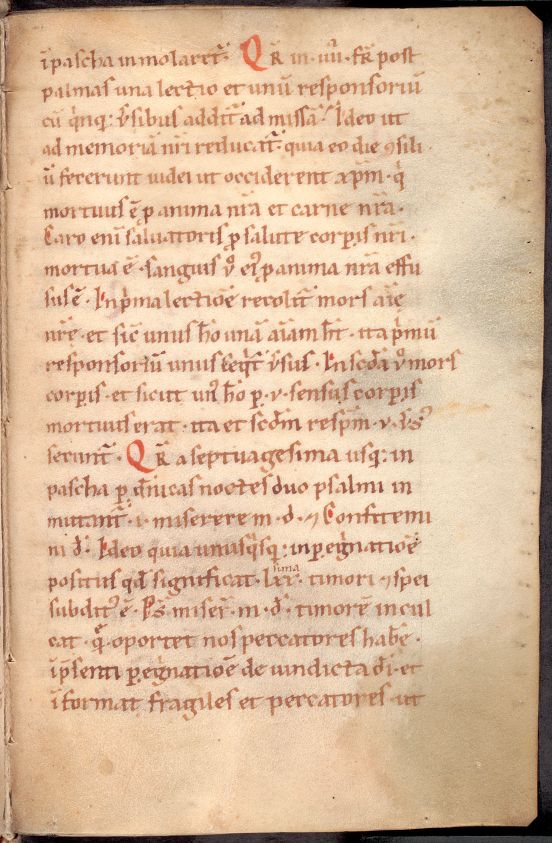 ī pascha inmolaret᷑. Qr̄ in·iiii·fr̄ post
palmas una lectio et unū responsoriū
cū q̍nq; v̍sibus addit᷑ ad missā / Ideo ut
ad memoriā nr̄i reducat᷑. quia eo die ꝯsili
ū fecerunt iudei ut occiderent xp̄m· q̍
mortuus ē ꝑ anima nr̄a et carne nr̄a·
Caro eni᷒ saluatoris ꝓ salute corꝑis nr̄i·
mortua ē · sanguis v̊ ei᷒ ꝑ anima nr̄a effu
sus ē · In p̍ma lectiōe recolit᷑ mors aīę
nr̄ę · et sic᷑ unus hō unā aīam h̄t · ita p̍mū
responsoriū unus seq̍t᷑ v̍sus · In scd̄a v̊ mors
corꝑis · et sicut un᷒ hō ꝑ · v · sensus corꝑis
mortuus erat · ita et scd̄m resp̄m · v · v̍s᷒
secunt᷑ · Qr̄ a septuagesima usq; in
pascha ꝑ d̄nicas noctes duo psalmi in
mutant᷑ · i · miserere m · d̄ · ⁊ Confitemi
ni d̄ · Ideo quia unusq̍sq; in ꝑegͥnatiōe
positus qd̄ significat · lxxsima · timori ⁊ spei
subdit᷒ ē · Ps̄ · miser̄ · m · d̄ · timorē incul
cat · q̄ · oportet nos peccatores habe̅ ·
ī p̄senti ꝑegͥnatiōe de uindicta dī · et
īformat fragiles et peccatores ut